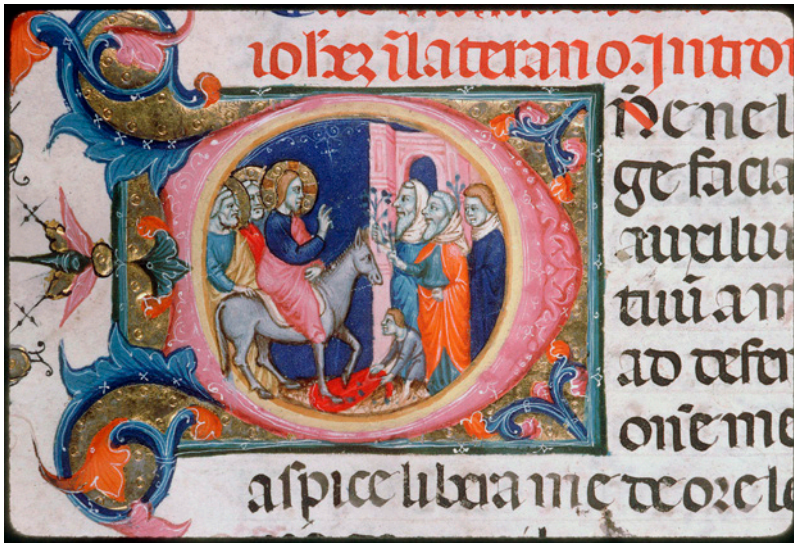 ioħez ĩ laterano. Introi
Dñe ne l
ge facia
auxiliu
tuũ a m
ad defen
onẽ me
aspice libera me de ore le